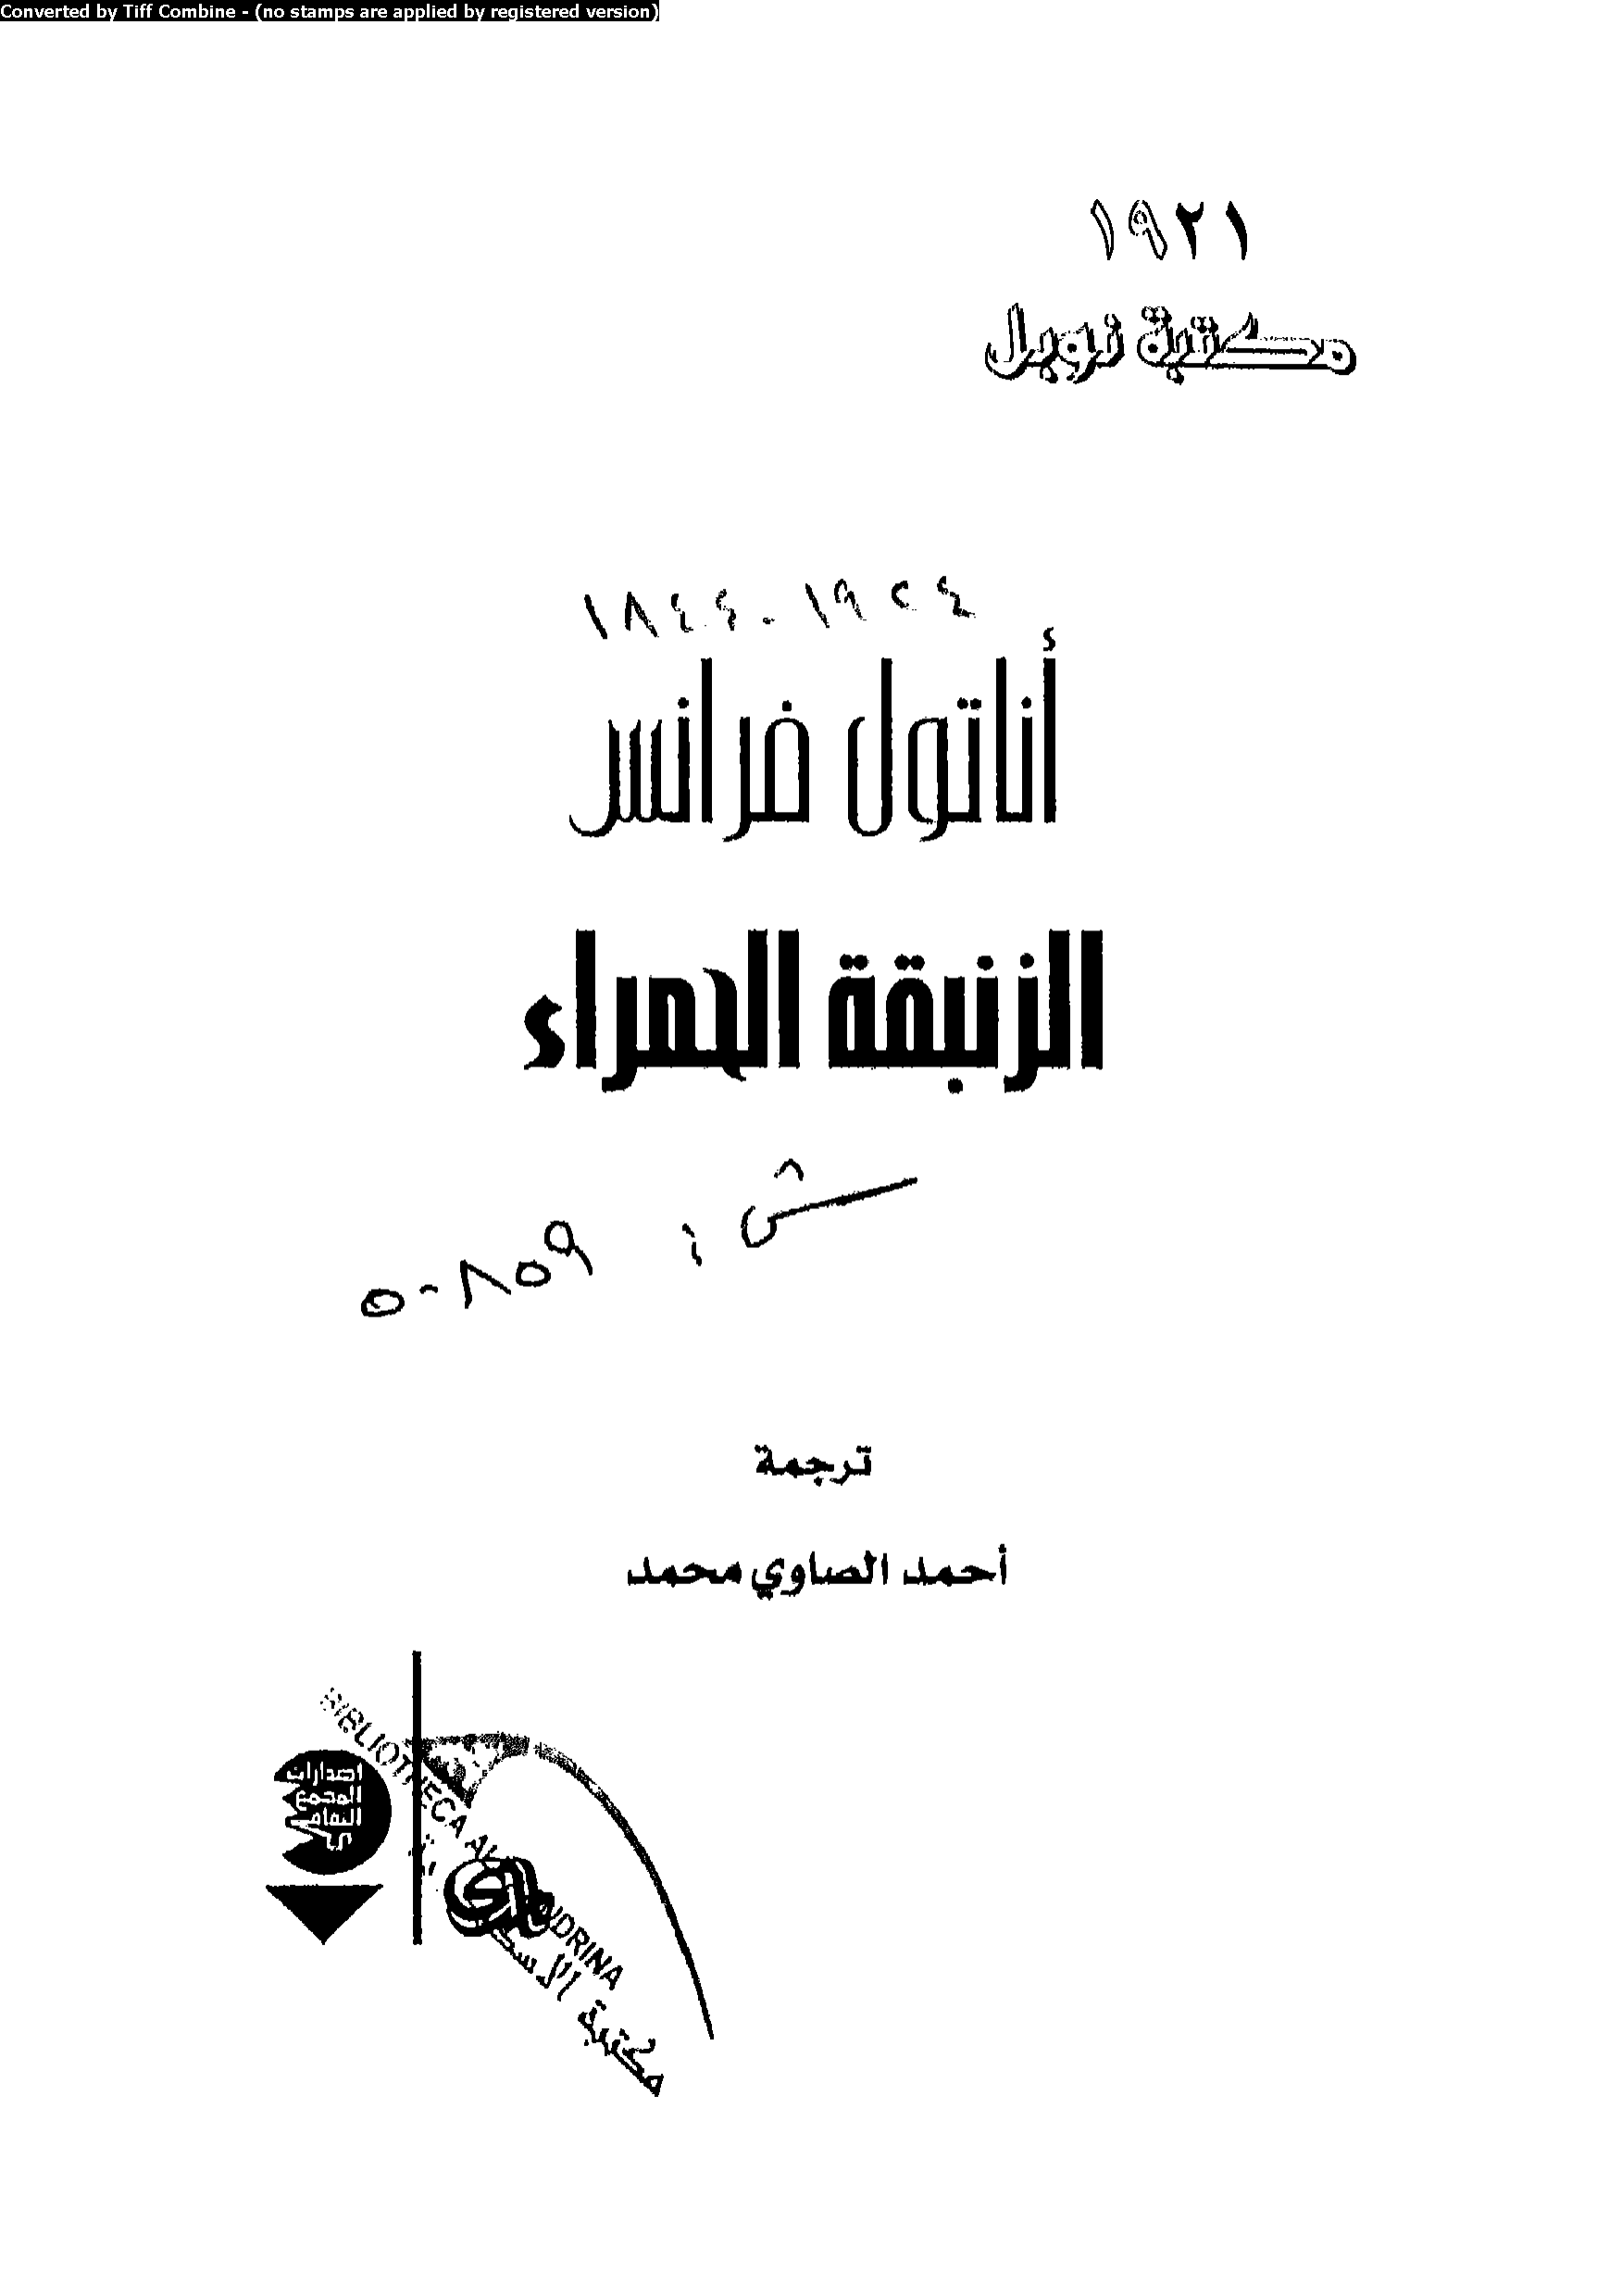 Converted by Tiff Combine - (no stamps are applied by registered version)
١٩٢١
مكتبة نوبل
١٨٤٤-١٩٢٤
أناتول فرانس
الزنبقة الحمراء
ش: ٥٠٨٥٩
ترجمة
أحمد الصاوي محمد
اصدارات
المجمع
الثقافي
BIBLIOTHECA ALEXANDRINA
مكتبة